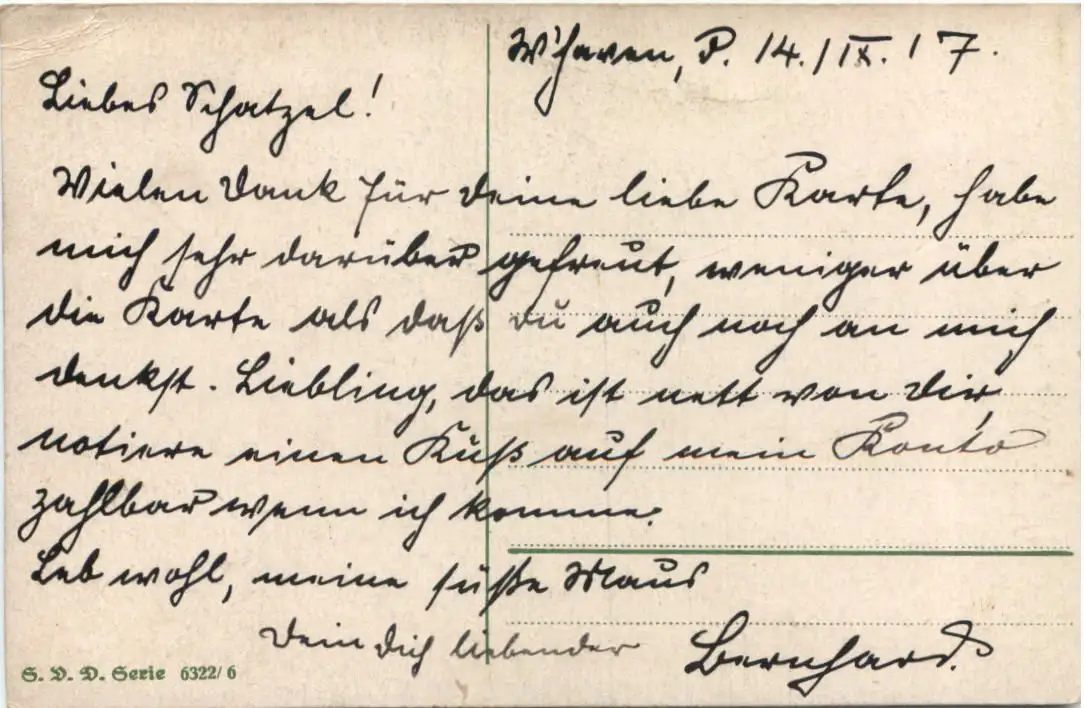 W'haven, P. 14./IX. 17.
Liebes Schatzel!
Vielen Dank für Deine liebe Karte, habe
mich sehr darüber gefreut, weniger über
die Karte als daß Du auch noch an mich
denkst. Liebling, das ist nett von Dir,
notiere einen Kuß auf mein Konto
zahlbar wenn ich komme.
Leb wohl, meine süße Maus
Dein Dich liebender Bernhard.
S. V. D. Serie 6322/6